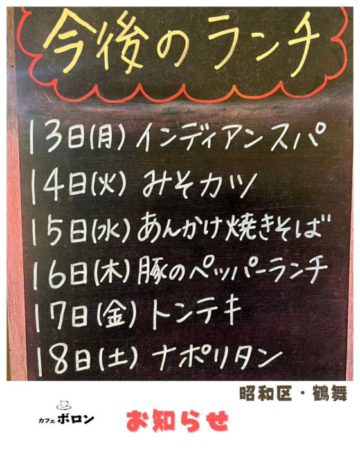 今後のランチ
13日(月)インディアンスパ
14日(火)みそカツ
15日(水)あんかけ焼きそば
16日(木)豚のペッパーランチ
17日(金)トンテキ
18日(土)ナポリタン
昭和区・鶴舞
カフェ ボロン
お知らせ